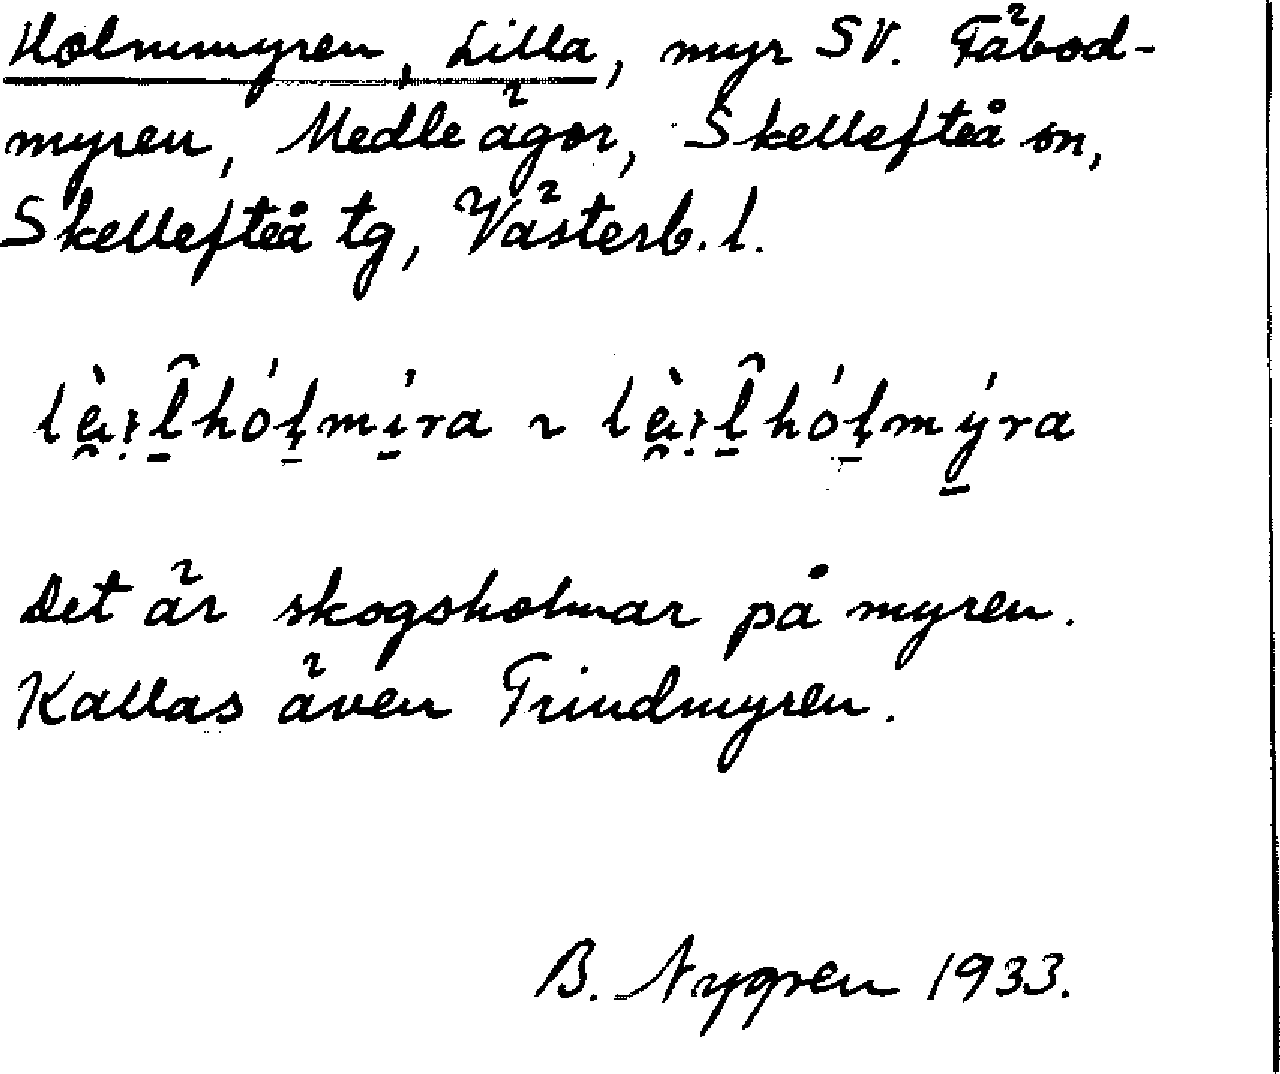 Holmmyren, Lilla, myr SV. Fäbod-
myren, Medle ägor, Skellefteå sn,
Skellefteå tg, Västerb. l.
Det är skogsholmar på myren.
Kallas även Trindmyren.
B. Nygren 1933.